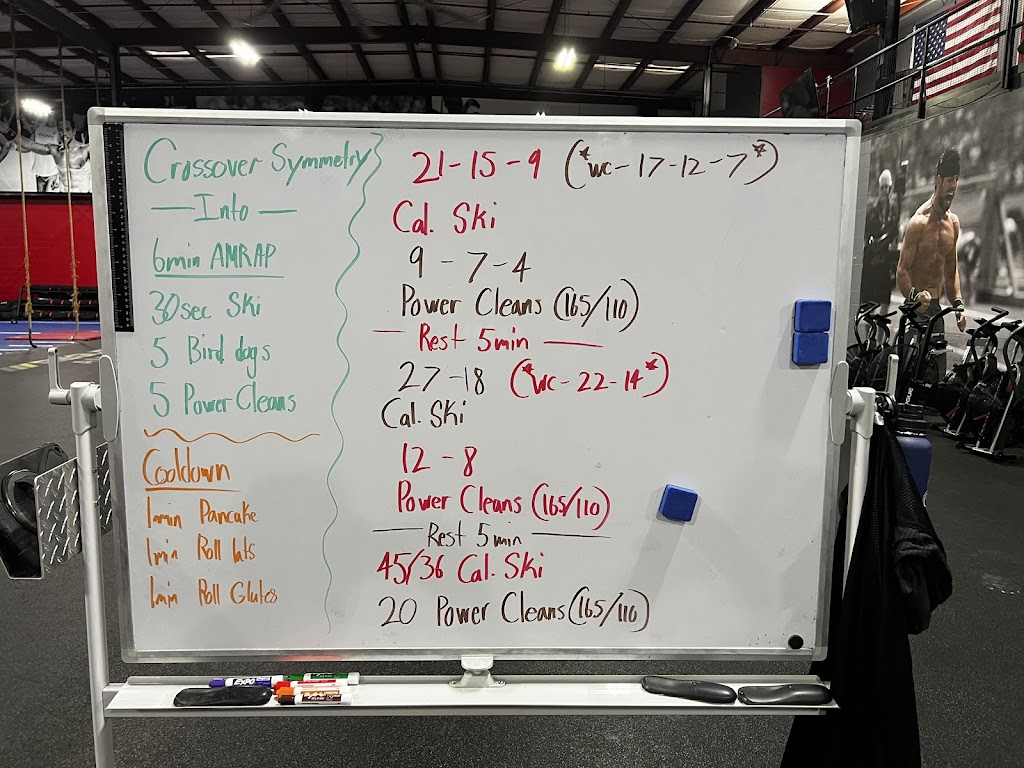 Crossover Symmetry
— Into —
6min AMRAP
30sec Ski
5 Bird dogs
5 Power Cleans
Cooldown
1min Pancake
1min Roll lats
1min Roll Glutes
21-15-9 (*wc-17-12-7*)
Cal. Ski
9-7-4
Power Cleans (165/110)
— Rest 5min —
27-18 (*wc-22-14*)
Cal. Ski
12-8
Power Cleans (165/110)
— Rest 5min —
45/36 Cal. Ski
20 Power Cleans (165/110)
EXPO